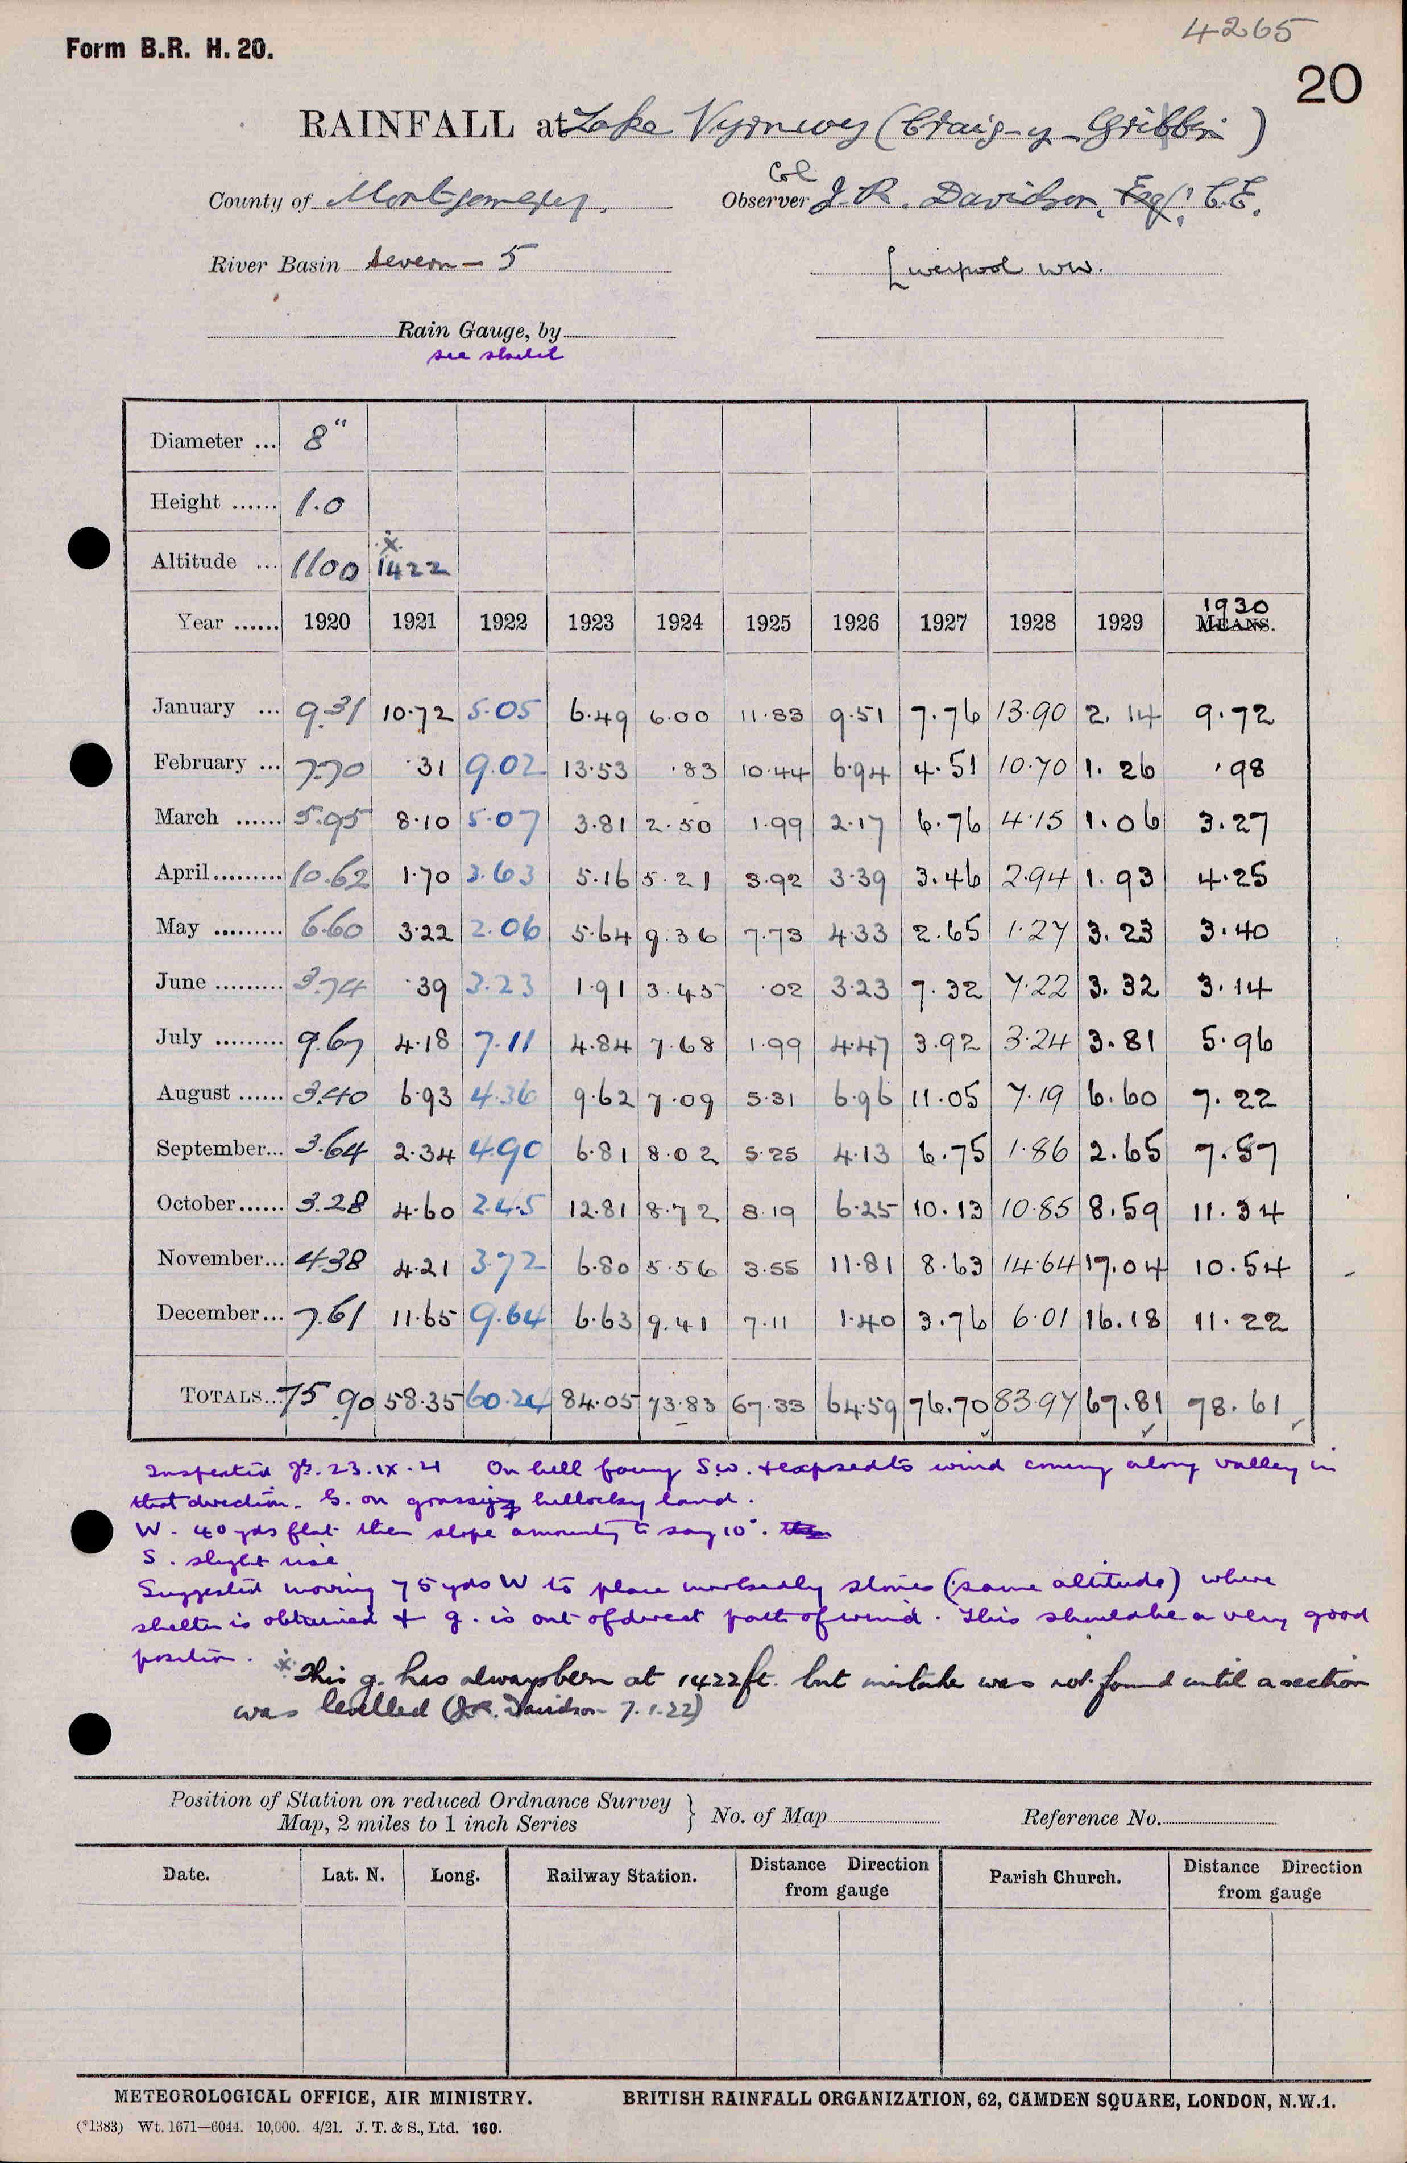 4265
Form B.R. H. 20.
20
RAINFALL at Lake Vyrnwy (Craig-y-Gribbin)
Col
County of Montgomery. Observer J. R. Davidson, Esq. C.E.
River Basin Severn - 5 Liverpool WW.
Rain Gauge, by
see sheet
Diameter ... 8"
Height ...... 1.0
Altitude ... 1100 x 1422
Year ...... 1920 1921 1922 1923 1924 1925 1926 1927 1928 1929 1930 MEANS.
January ... 9.31 10.72 5.05 6.49 6.00 11.83 9.51 7.76 13.90 2.14 9.72
February ... 7.70 .31 9.02 13.53 .83 10.44 6.94 4.51 10.70 1.26 .98
March ...... 5.95 8.10 5.07 3.81 2.50 1.99 2.17 6.76 4.15 1.06 3.27
April ......... 10.62 1.70 3.63 5.16 5.21 3.92 3.39 3.46 2.94 1.93 4.25
May ......... 6.60 3.22 2.06 5.64 9.36 7.73 4.33 2.65 1.27 3.23 3.40
June ......... 3.74 .39 3.23 1.91 3.45 .02 3.23 7.32 7.22 3.32 3.14
July ......... 9.67 4.18 7.11 4.84 7.68 1.99 4.47 3.92 3.24 3.81 5.96
August ...... 3.40 6.93 4.36 9.62 7.09 5.31 6.96 11.05 7.19 6.60 7.22
September... 3.64 2.34 4.90 6.81 8.02 5.25 4.13 6.75 1.86 2.65 7.57
October...... 3.28 4.60 2.45 12.81 8.72 8.19 6.25 10.13 10.85 8.59 11.34
November... 4.38 4.21 3.72 6.80 5.56 3.55 11.81 8.63 14.64 17.04 10.54
December... 7.61 11.65 9.64 6.63 9.41 7.11 1.40 3.76 6.01 16.18 11.22
TOTALS... 75.90 58.35 60.24 84.05 73.83 67.33 64.59 76.70 83.97 67.81 78.61
Inspected 23.IX.21 On hill facing S.W. & exposed to wind coming along valley in
that direction. G. on grassy hillocky land.
W. 40 yds flat then slope amounting to say 10°.
S. slight rise
Suggested moving 75 yds W to place markedly stones (same altitude) where
shelter is obtained & g. is out of direct path of wind. This should be a very good
position.
x This g. has always been at 1422 ft. but mistake was not found until a section
was levelled (J.R. Davidson 7.1.22)
Position of Station on reduced Ordnance Survey Map, 2 miles to 1 inch Series } No. of Map Reference No.
Date. Lat. N. Long. Railway Station. Distance Direction from gauge Parish Church. Distance Direction from gauge
METEOROLOGICAL OFFICE, AIR MINISTRY. BRITISH RAINFALL ORGANIZATION, 62, CAMDEN SQUARE, LONDON, N.W.1.
(*1383) Wt. 1671—6044. 10,000. 4/21. J. T. & S., Ltd. 160.